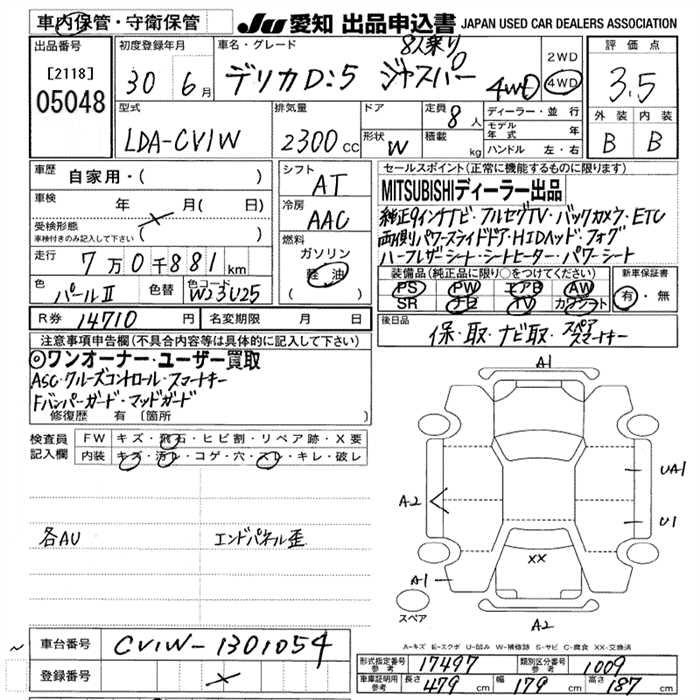 車内保管・守衛保管
JU 愛知 出品申込書 JAPAN USED CAR DEALERS ASSOCIATION
出品番号
[2118]
05048
初度登録年月
30年 6月
車名・グレード
8人乗り
デリカD:5 ジャスパー 4WD
2WD
4WD
評価点
3.5
型式
LDA-CV1W
排気量
2300 CC
ドア
形状 W
定員 8人
積載 kg
ディーラー・並行
モデル年式 年
ハンドル 左・右
外装 内装
B B
車歴 自家用・( )
車検 年 月( 日)
受検形態
車検付きのみ記入して下さい ( )
走行 7万0千881km
色 パールⅡ 色替 色コード W23U25
シフト AT
冷房 AAC
燃料
ガソリン
軽油
( )
セールスポイント(正常に機能するものに限ります)
MITSUBISHIディーラー出品
純正9インチナビ・フルセグTV・バックカメラ・ETC
両側パワースライドドア・HIDヘッド・フォグ
ハーフレザーシート・シートヒーター・パワーシート
装備品(純正品に限り○をつけてください)
PS PW エアB AW
SR ナビ TV カワシート
新車保証書
有・無
R券 14710 円 名変期限 月 日
後日品 保・取・ナビ取・スペア スマートキー
注意事項申告欄(不具合内容等は具体的に記入して下さい)
◎ワンオーナー・ユーザー買取
ASC・クルーズコントロール・スマートキー
Fバンパーガード・マッドガード
修復歴 有 〔箇所 〕
検査員記入欄
FW キズ・飛石・ヒビ割・リペア跡・X要
内装 キズ・汚レ・コゲ・穴・スレ・キレ・破レ
各AU エンドパネル歪
A1
UA1
A2
U1
XX
A1
スペア
A2
A-キズ E-エクボ U-凹み W-補修跡 S-サビ C-腐食 XX-交換済
車台番号 CV1W-1301054
登録番号
形式指定番号 参考 17497 類別区分番号 参考 1009
車庫証明用 参考 長さ 479 cm 幅 179 cm 高さ 187 cm